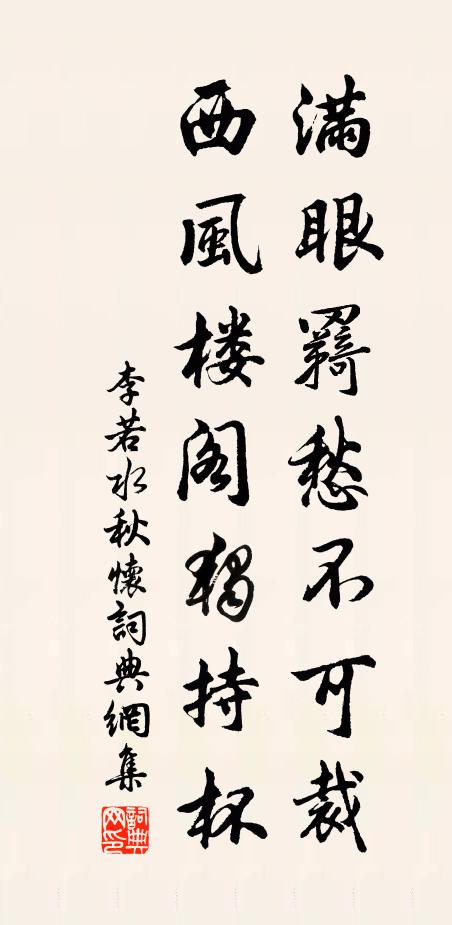 滿眼羇愁不可裁
西風楼阁獨持杯
李若水秋懷詞典網集
詞典网印